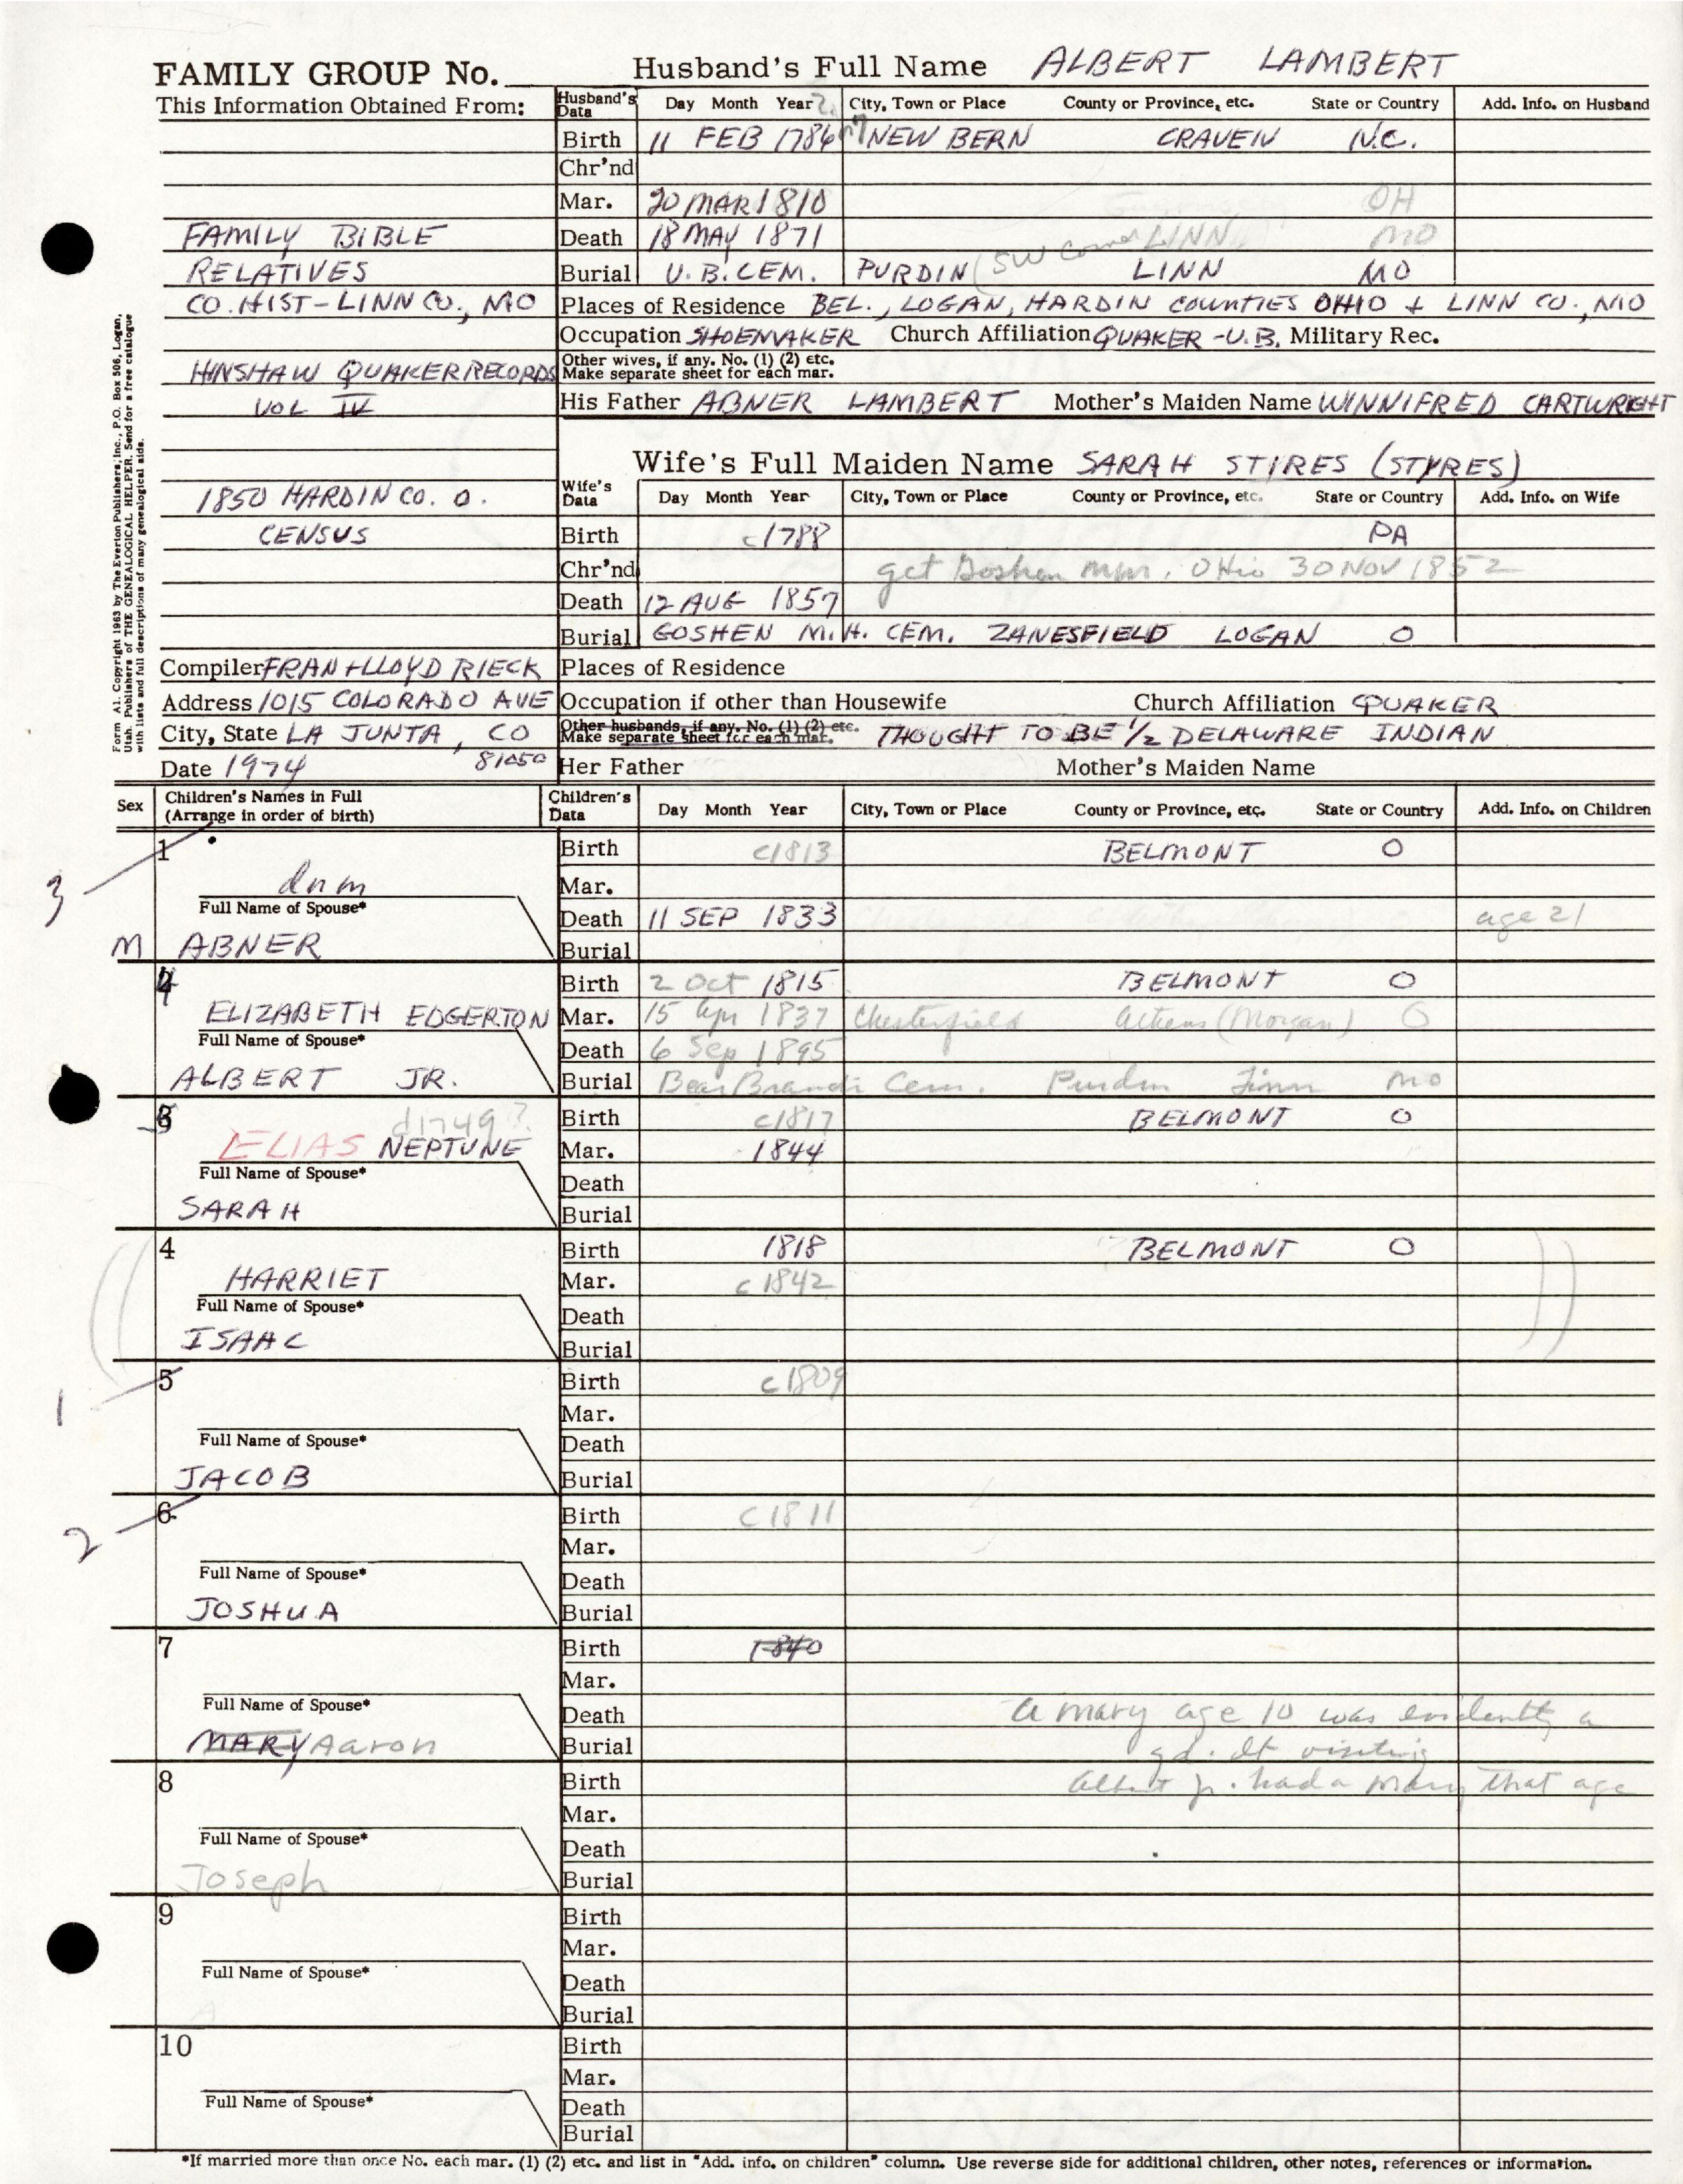 FAMILY GROUP No.
Husband's Full Name ALBERT LAMBERT
This Information Obtained From:
Husband's Data Day Month Year ? City, Town or Place County or Province, etc. State or Country Add. Info. on Husband
Birth 11 FEB 1786 NEW BERN CRAVEN N.C.
Chr'nd
Mar. 20 MAR 1810 OH
FAMILY BIBLE Death 18 MAY 1871 LINN MO
RELATIVES Burial U.B. CEM. PURDIN (SW corner LINN MO
CO. HIST - LINN CO., MO Places of Residence BEL., LOGAN, HARDIN COUNTIES OHIO + LINN CO., MO
Occupation SHOEMAKER Church Affiliation QUAKER - U.B. Military Rec.
HINSHAW QUAKER RECORDS Other wives, if any. No. (1) (2) etc.
Make separate sheet for each mar.
VOL IV His Father ABNER LAMBERT Mother's Maiden Name WINNIFRED CARTWRIGHT
Wife's Full Maiden Name SARAH STIRES (STYRES)
1850 HARDIN CO. O. Wife's Data Day Month Year City, Town or Place County or Province, etc. State or Country Add. Info. on Wife
CENSUS Birth c1788 PA
Chr'nd get Goshen mm, Ohio 30 NOV 1852
Death 12 AUG 1857
Burial GOSHEN M.H. CEM. ZANESFIELD LOGAN O
Compiler FRAN + LLOYD RIECK Places of Residence
Address 1015 COLORADO AVE Occupation if other than Housewife Church Affiliation QUAKER
City, State LA JUNTA, CO Other husbands, if any. No. (1) (2) etc. Make separate sheet for each mar. THOUGHT TO BE 1/2 DELAWARE INDIAN
Date 1974 81050 Her Father Mother's Maiden Name
Form A1. Copyright 1963 by The Everton Publishers, Inc., P.O. Box 506, Logan,
Utah. Publishers of THE GENEALOGICAL HELPER. Send for a free catalogue
with lists and full descriptions of many genealogical aids.
Sex Children's Names in Full (Arrange in order of birth) Children's Data Day Month Year City, Town or Place County or Province, etc. State or Country Add. Info. on Children
3 1 Birth c1813 BELMONT O
dnm Mar.
Full Name of Spouse* Death 11 SEP 1833 age 21
M ABNER Burial
4 Birth 2 Oct 1815 BELMONT O
ELIZABETH EDGERTON Mar. 15 Apr 1837 Chesterfield Athens (Morgan) O
Full Name of Spouse* Death 6 Sep 1895
ALBERT JR. Burial Bear Branch Cem. Purdin Linn MO
5 d1749? Birth c1817 BELMONT O
ELIAS NEPTUNE Mar. 1844
Full Name of Spouse* Death
SARAH Burial
4 Birth 1818 BELMONT O
HARRIET Mar. c1842
Full Name of Spouse* Death
ISAAC Burial
1 5 Birth c1809
Mar.
Full Name of Spouse* Death
JACOB Burial
2 6 Birth c1811
Mar.
Full Name of Spouse* Death
JOSHUA Burial
7 Birth 1840
Mar.
Full Name of Spouse* Death a mary age 10 was evidently a
MARY Aaron Burial gd. dt visiting
8 Birth Albert Jr. had a Mary that age
Mar.
Full Name of Spouse* Death
Joseph Burial
9 Birth
Mar.
Full Name of Spouse* Death
Burial
10 Birth
Mar.
Full Name of Spouse* Death
Burial
*If married more than once No. each mar. (1) (2) etc. and list in "Add. info. on children" column. Use reverse side for additional children, other notes, references or information.